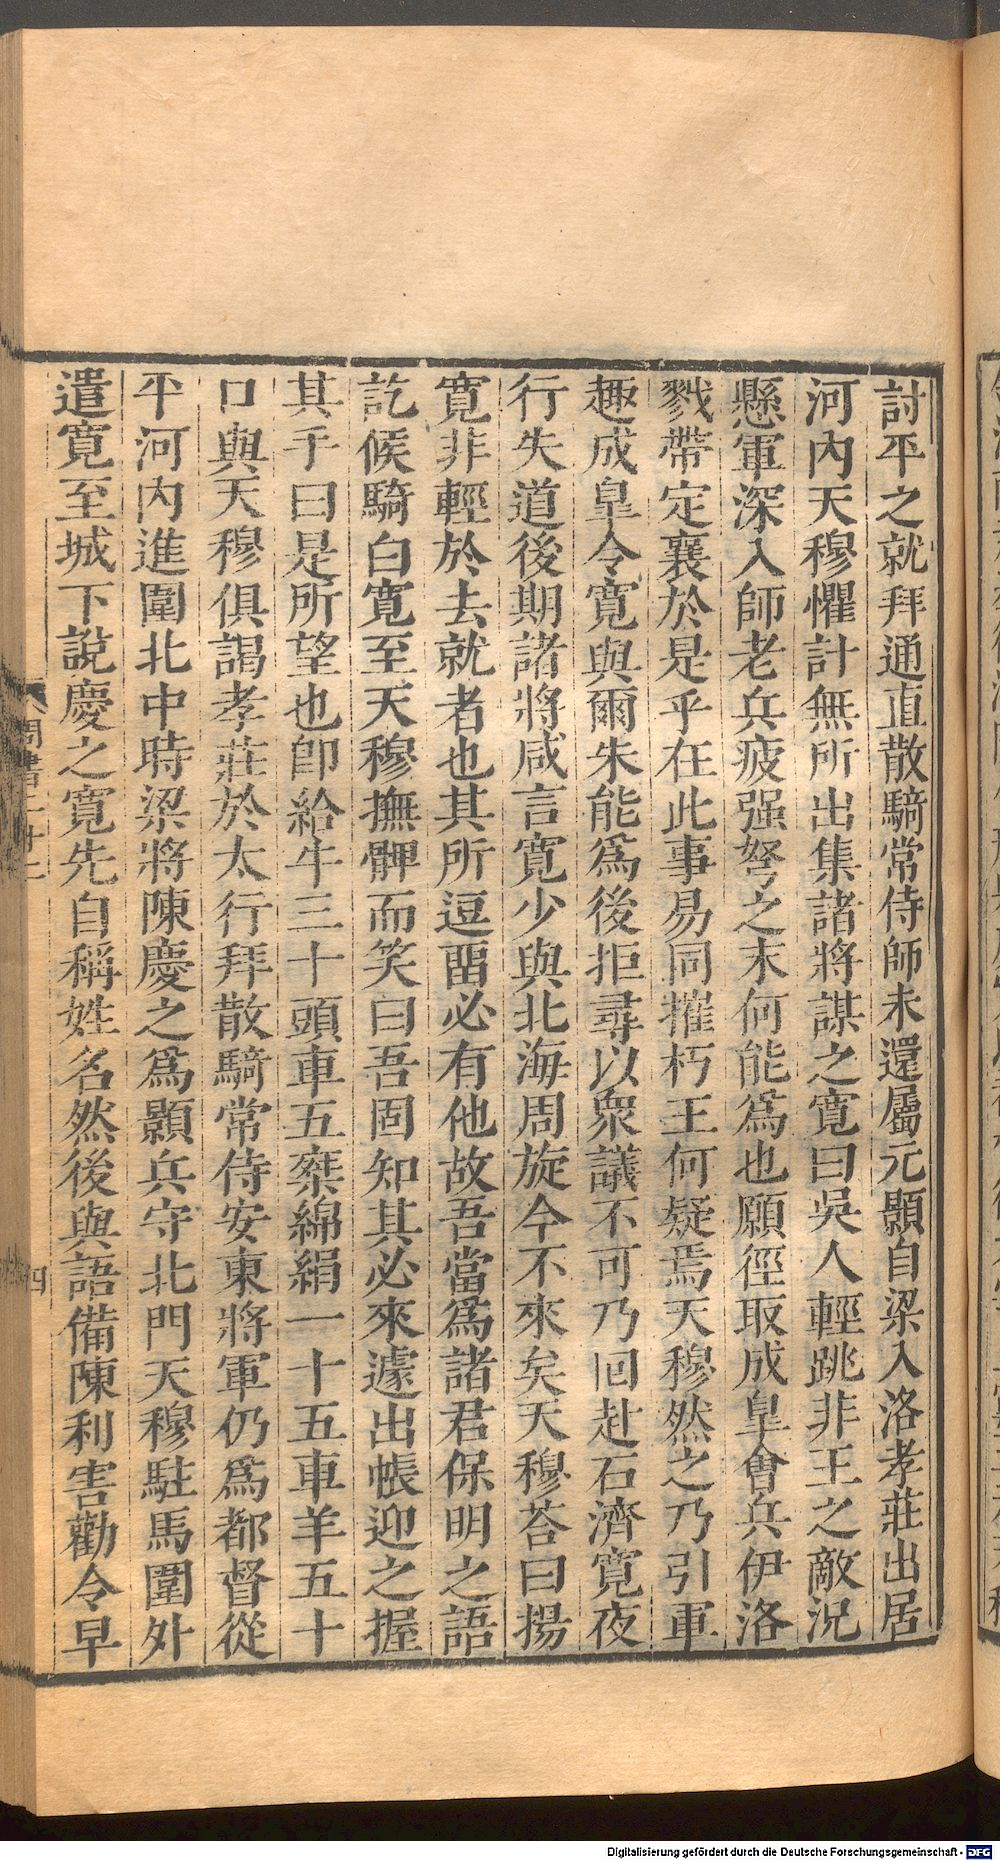 討平之就拜通直散騎常侍師未還屬元顥自梁入洛孝莊出居
河內天穆懼計無所出集諸將謀之寬曰吳人輕跳非王之敵況
懸軍深入師老兵疲强弩之末何能爲也願徑取成臯會兵伊洛
戮帶定襄於是乎在此事易同摧朽王何疑焉天穆然之乃引軍
趣成皐令寬與爾朱能爲後拒尋以衆議不可乃回赴石濟寬夜
行失道後期諸將咸言寬少與北海周旋今不來矣天穆荅曰揚
寬非輕於去就者也其所逗畱必有他故吾當爲諸君保明之語
訖候騎白寬至天穆撫髀而笑曰吾固知其必來遽出帳迎之握
其手曰是所望也卽給牛三十頭車五乘綿絹一十五車羊五十
口與天穆俱謁孝莊於太行拜散騎常侍安東將軍仍爲都督從
平河內進圍北中時梁將陳慶之爲顥兵守北門天穆駐馬圍外
遣寬至城下說慶之寬先自稱姓名然後與語備陳利害勸令早
周書二十二
四
Digitalisierung gefördert durch die Deutsche Forschungsgemeinschaft - DFG